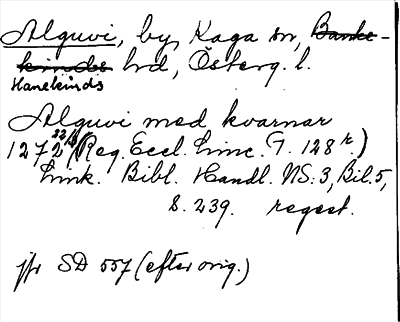 Alguvi, by, Kaga sn, Banke-
kinds hrd, Österg. l.
Hanekinds
Alguvi med kvarnar
1272 22/8 (Reg. Eccl. Linc. T. 128 r.)
Link. Bibl. Handl. NS: 3, Bil. 5,
S. 239. regest.
jfr SD 557 (efter orig.)